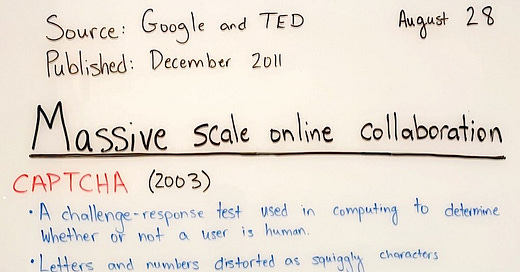 Source: Google and TED August 28
Published: December 2011
Massive scale online collaboration
CAPTCHA (2003)
• A challenge-response test used in computing to determine
whether or not a user is human.
• Letters and numbers distorted as squiggly characters